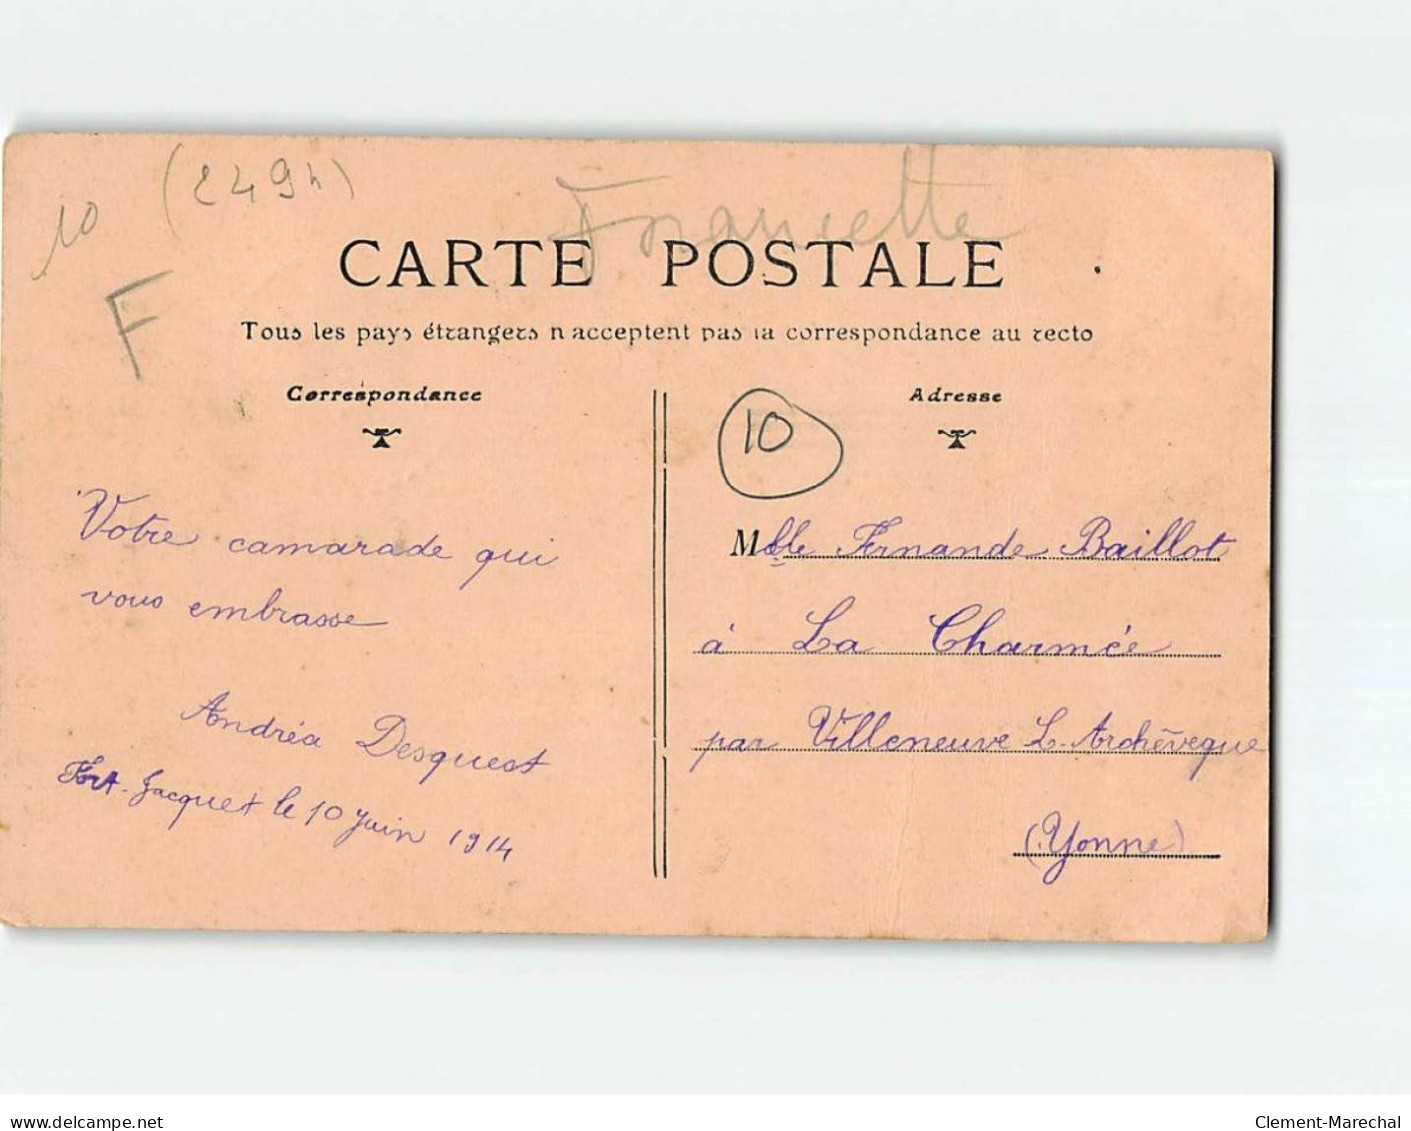 10
(2494)
Francette
F
CARTE POSTALE
Tous les pays étrangers n'acceptent pas la correspondance au recto
Correspondance
Adresse
10
Votre camarade qui
vous embrasse
Andréa Desquest
Fort-Jacquet le 10 Juin 1914
Mlle Fernande Baillot
à La Charmée
par Villeneuve L-Archévêque
(Yonne)
www.delcampe.net
Clement-Marechal